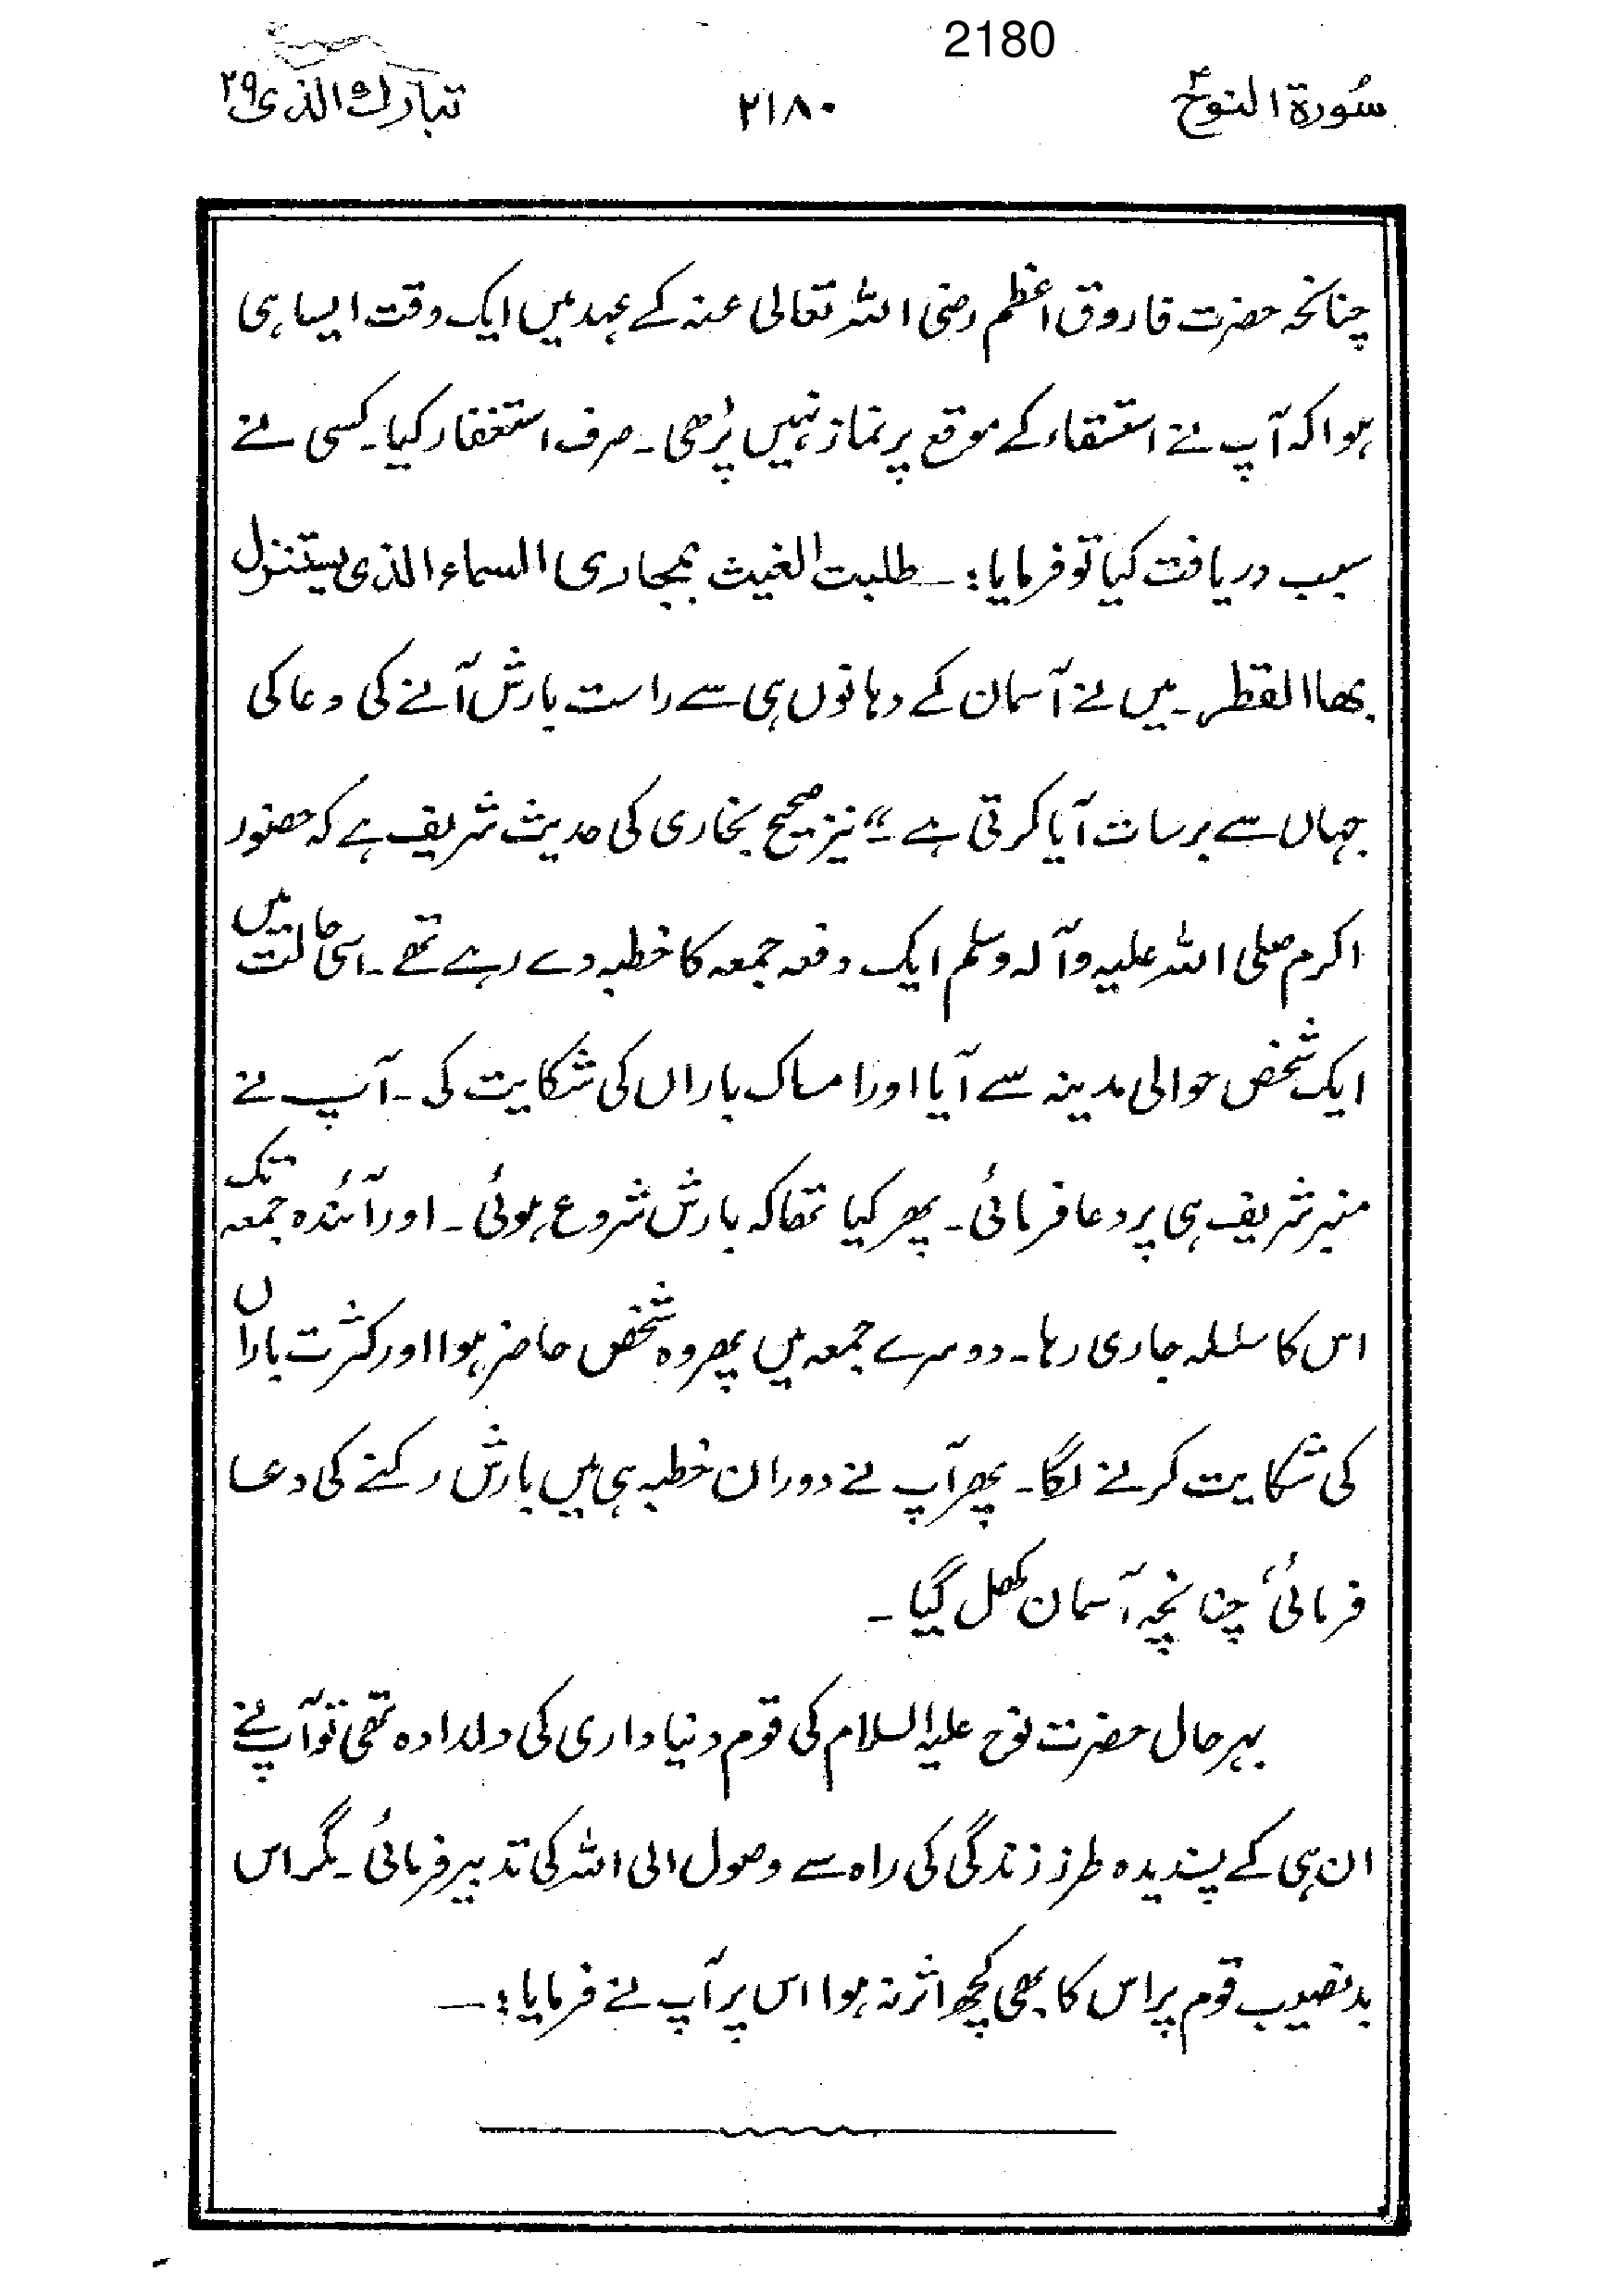 2180
سُورۃ النوح ۴ ۲۱۸۰ تبارک الذی ۲۹
چنانچہ حضرت فاروق اعظم رضی اللہ تعالی عنہ کے عہد میں ایک وقت ایسا ہی
ہوا کہ آپ نے استسقاء کے موقع پر نماز نہیں پڑھی۔ صرف استغفار کیا۔ کسی نے
سبب دریافت کیا تو فرمایا:۔ طلبت الغیث بمجاری السماء الذی یستنزل
بھا القطر۔ میں نے آسمان کے دہانوں ہی سے راست بارش آنے کی دعا کی
جہاں سے برسات آیا کرتی ہے۔“ نیز صحیح بخاری کی حدیث شریف ہے کہ حضور
اکرم صلی اللہ علیہ وآلہ وسلم ایک دفعہ جمعہ کا خطبہ دے رہے تھے۔ اسی حالت میں
ایک شخص حوالی مدینہ سے آیا اور امساک باراں کی شکایت کی۔ آپ نے
منبر شریف ہی پر دعا فرمائی۔ پھر کیا تھا کہ بارش شروع ہوئی۔ اور آئندہ جمعہ تک
اس کا سلسلہ جاری رہا۔ دوسرے جمعہ میں پھر وہ شخص حاضر ہوا اور کثرت باراں
کی شکایت کرنے لگا۔ پھر آپ نے دوران خطبہ ہی میں بارش رکنے کی دعا
فرمائی، چنانچہ آسمان کھل گیا۔
بہرحال حضرت نوح علیہ السلام کی قوم دنیا داری کی دلدادہ تھی تو آپ نے
ان ہی کے پسندیدہ طرز زندگی کی راہ سے وصول الی اللہ کی تدبیر فرمائی۔ مگر اس
بدنصیب قوم پر اس کا بھی کچھ اثر نہ ہوا اس پر آپ نے فرمایا:۔